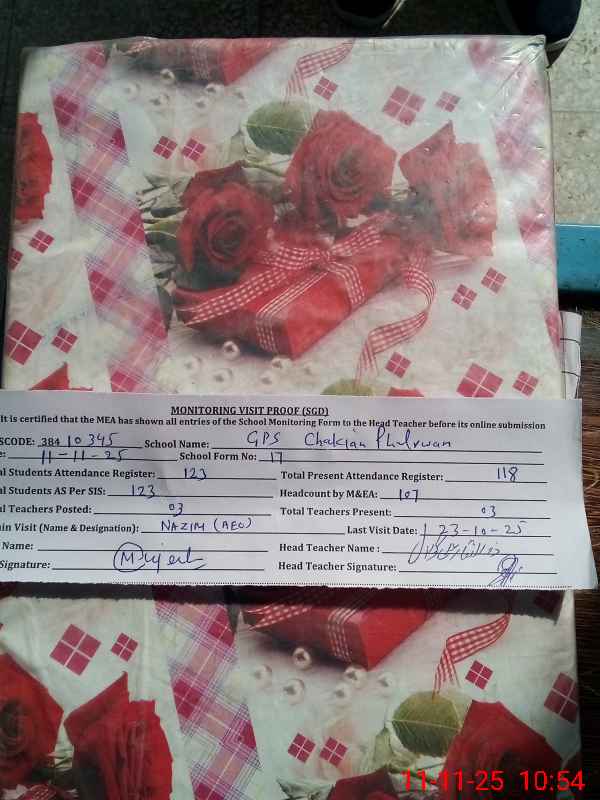 MONITORING VISIT PROOF (SGD)
It is certified that the MEA has shown all entries of the School Monitoring Form to the Head Teacher before its online submission
SCODE: 384 10345 School Name: GPS Chakian Phulrwan
e: 11-11-25 School Form No: 17
al Students Attendance Register: 123 Total Present Attendance Register: 118
al Students AS Per SIS: 123 Headcount by M&EA: 107
al Teachers Posted: 03 Total Teachers Present: 03
ain Visit (Name & Designation): NAZIM (AEO) Last Visit Date: 23-10-25
Name: Head Teacher Name:
Signature: Head Teacher Signature:
11-11-25 10:54